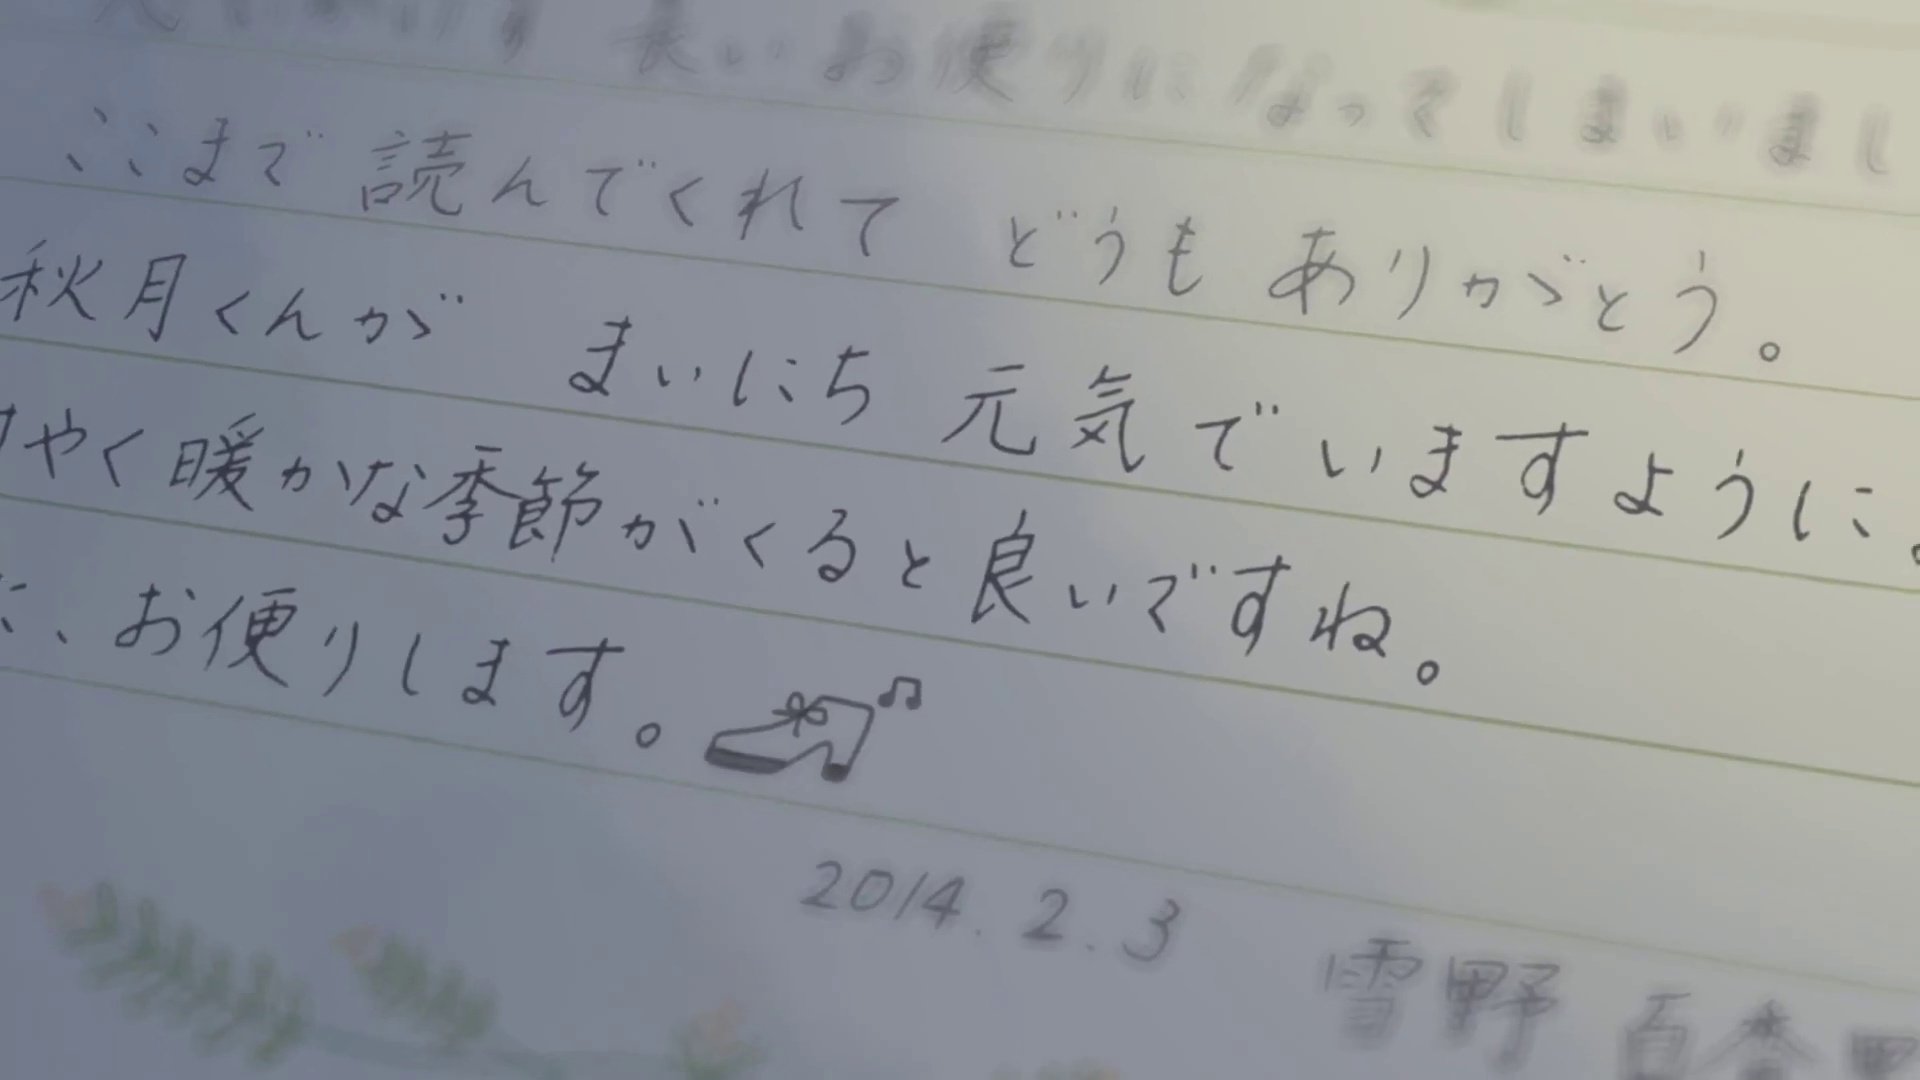 長いお便りになってしまいまし
ここまで 読んでくれて どうも ありがとう。
秋月くんが まいにち 元気でいますように。
やく暖かな季節がくると良いですね。
に、お便りします。
2014.2.3
雪野 百香里